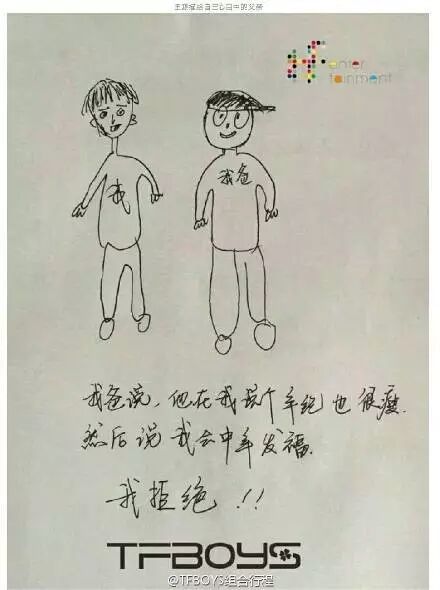 主题:描绘自己心目中的父亲
enter
tainment
我
我爸
我爸说，他在我这个年纪也很瘦.
然后说我会中年发福.
我拒绝!!
TFBOYS
@TFBOYS组合行程